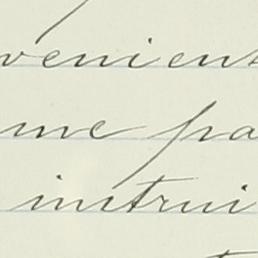 venient
me pa
instrui